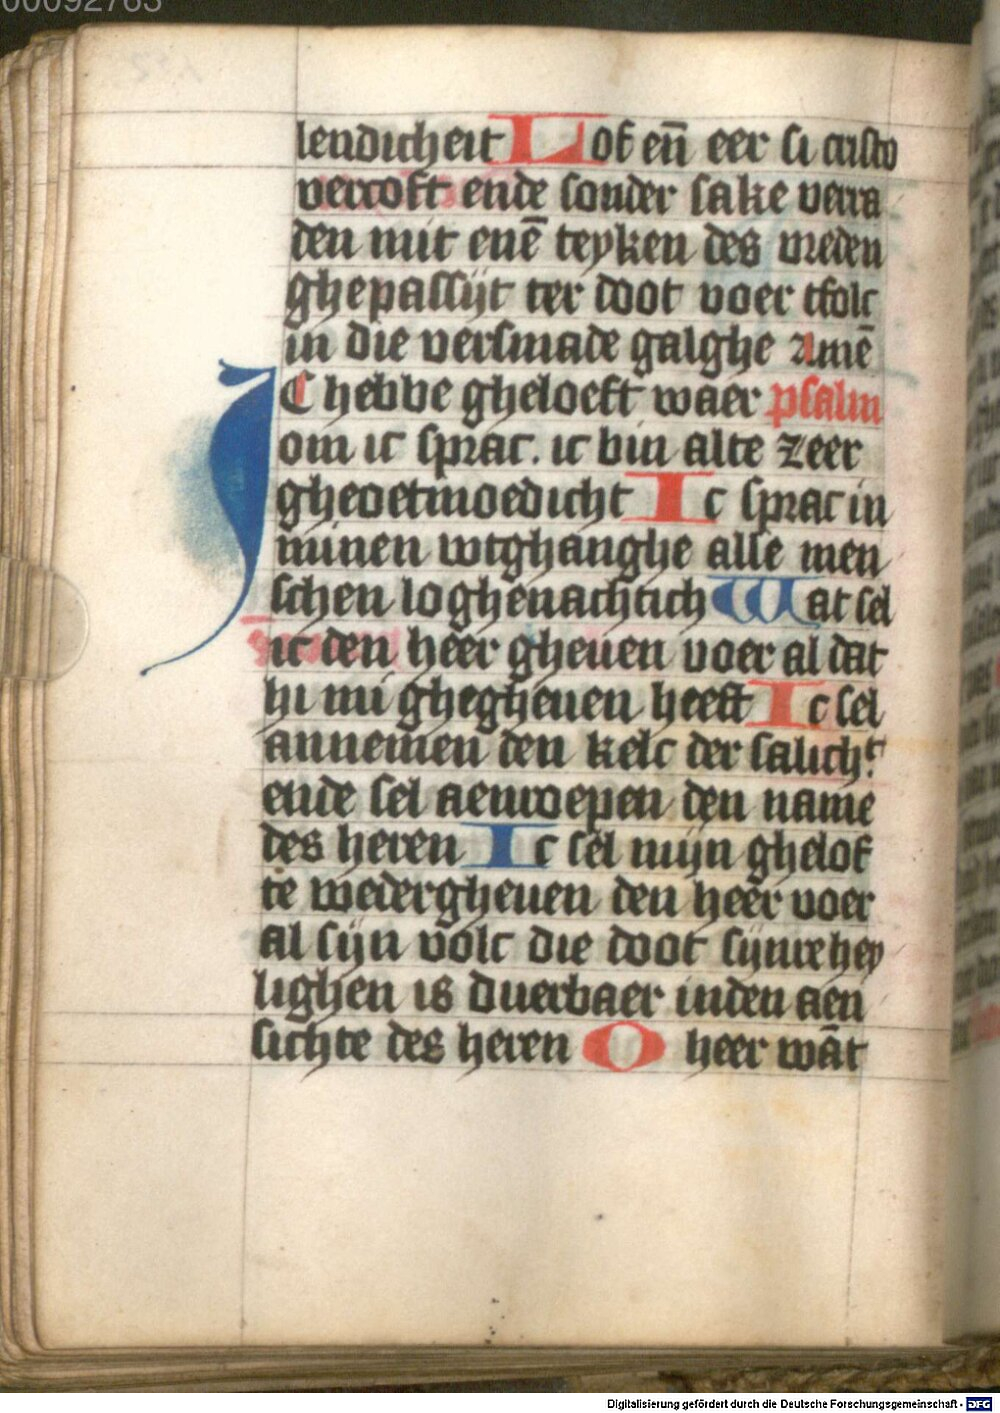 00092763
lendicheit Lof en̄ eer si cristo
vercoft ende sonder sake verra
den mit enē teyken des vreden
ghepassijt ter doot voer tfolc
in die versmade galghe Amē
IC hebbe gheloeft waer psalm
om ic sprac. ic bin alte zeer
gheoetmoedicht Ic sprac in
minen wtghanghe alle men
schen loghenachtich Wat sel
ic den heer gheuen voer al dat
hi mi ghegheuen heeft Ic sel
annemen den kelc der salich.t
ende sel aenroepen den name
des heren Ic sel mijn ghelof
te wedergheuen den heer voer
al sijn volc die doot sijnre hey
lighen is duerbaer inden aen
sichte des heren O heer wāt
Digitalisierung gefördert durch die Deutsche Forschungsgemeinschaft - DFG